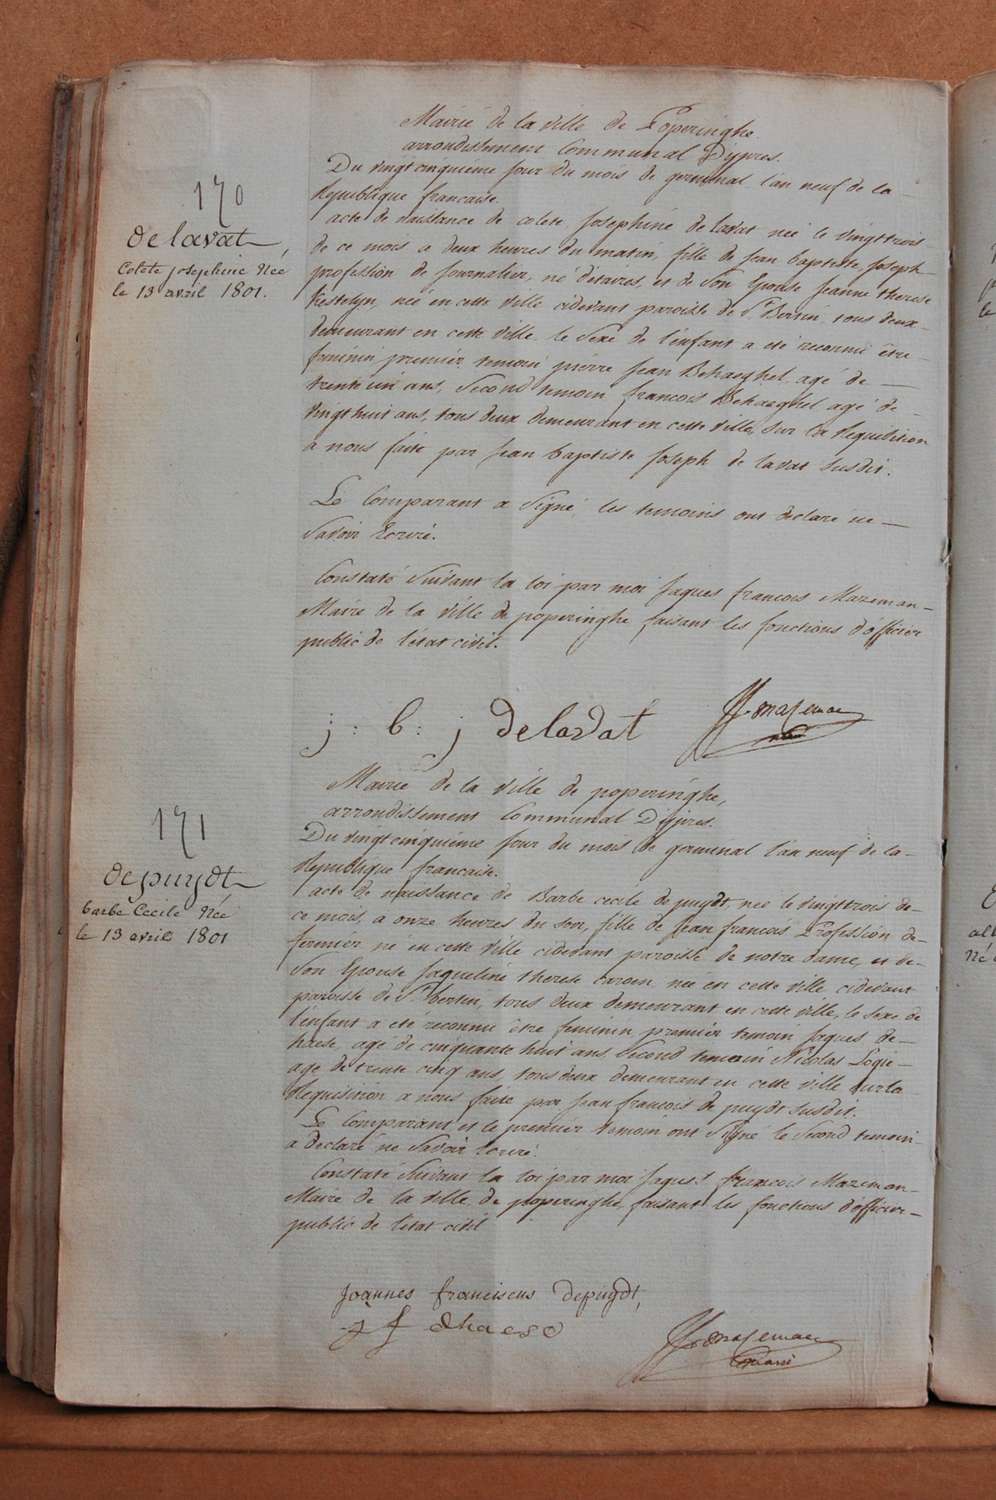 170
de lavat
Colete josephine Née
le 13 avril 1801.
Mairié de la ville de Poperinghe
arrondissement Communal D'ypres.
Du vingt cinquiéme jour du mois de germinal l'an neuf de la
Republique francaise.
acte de naissance de colete Josephine de lavat née le vingt trois
de ce mois a deux heures du matin, fille de jean baptiste joseph
profession de journalier, né d'étaires, et de son Epouse jeanne therese
Kestelyn, née en cette ville cidevant paroisse de St Bertin, tous deux
demeurant en cette ville, le sexe de l'enfant a été reconnu être
feminin, premier temoin pierre jean Behaeghel, agé de
trente un ans, Second temoin francois Behaeghel agé de
vingt huit ans, tous deux demeurant en cette ville, sur la Requisition
à nous faite par jean baptiste joseph de lavat susdit.
Le Comparant a Signé, les temoins ont declaré ne
Savoir Ecrire.
Constaté Suivant la loi par moi Jaques francois Mazeman
Maire de la ville de poperinghe faisant les fonctions d'officier
public de l'etat civil.
j : b : j delavat
Mazeman
171
de puydt
barbe Cecile Née
le 13 avril 1801
Mairié de la ville de poperinghe,
arrondissement Communal D'ypres.
Du vingt cinquiéme jour du mois de germinal l'an neuf de la
Republique francaise.
acte de naissance de Barbe cecile de puydt, née le vingt trois de
ce mois, a onze heures du soir, fille de jean francois Profession de
fermier né en cette ville cidevant paroisse de notre dame, et de
Son Epouse Jaqueline therese née en cette ville cidevant
paroisse de St Bertin, tous deux demeurant en cette ville, le sexe de
l'enfant a été reconnu être feminin premier temoin jaques de
haese, agé de cinquante huit ans, Second temoin Nicolas Logie
agé de trente cinq ans, tous deux demeurant en cette ville sur la
Requisition a nous faite par jean francois de puydt susdit.
Le Comparant et le premier temoin ont Signé le Second temoin
a declaré ne Savoir Ecrire.
Constaté Suivant la loi par moi Jaques francois Mazeman
Maire de la ville de poperinghe, faisant les fonctions d'officier
public de l'etat civil
Joannes franciscus depuydt,
j f dhaese
Mazeman